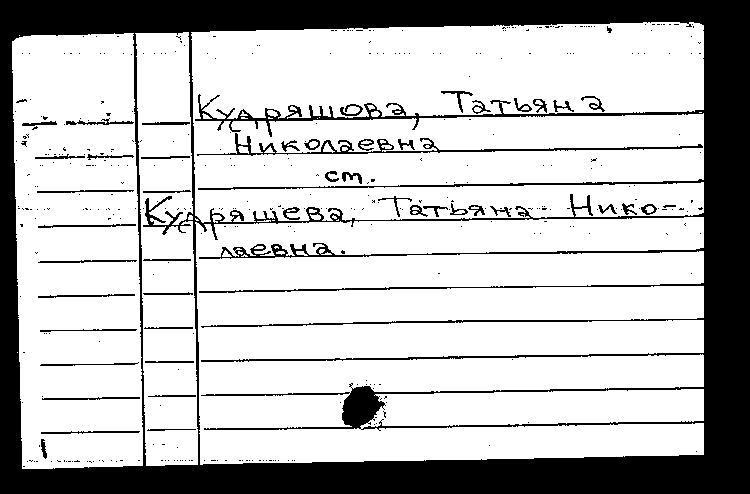 Кудряшова, Татьяна
Николаевна
ст.
Кудряшева, Татьяна Нико-
лаевна.